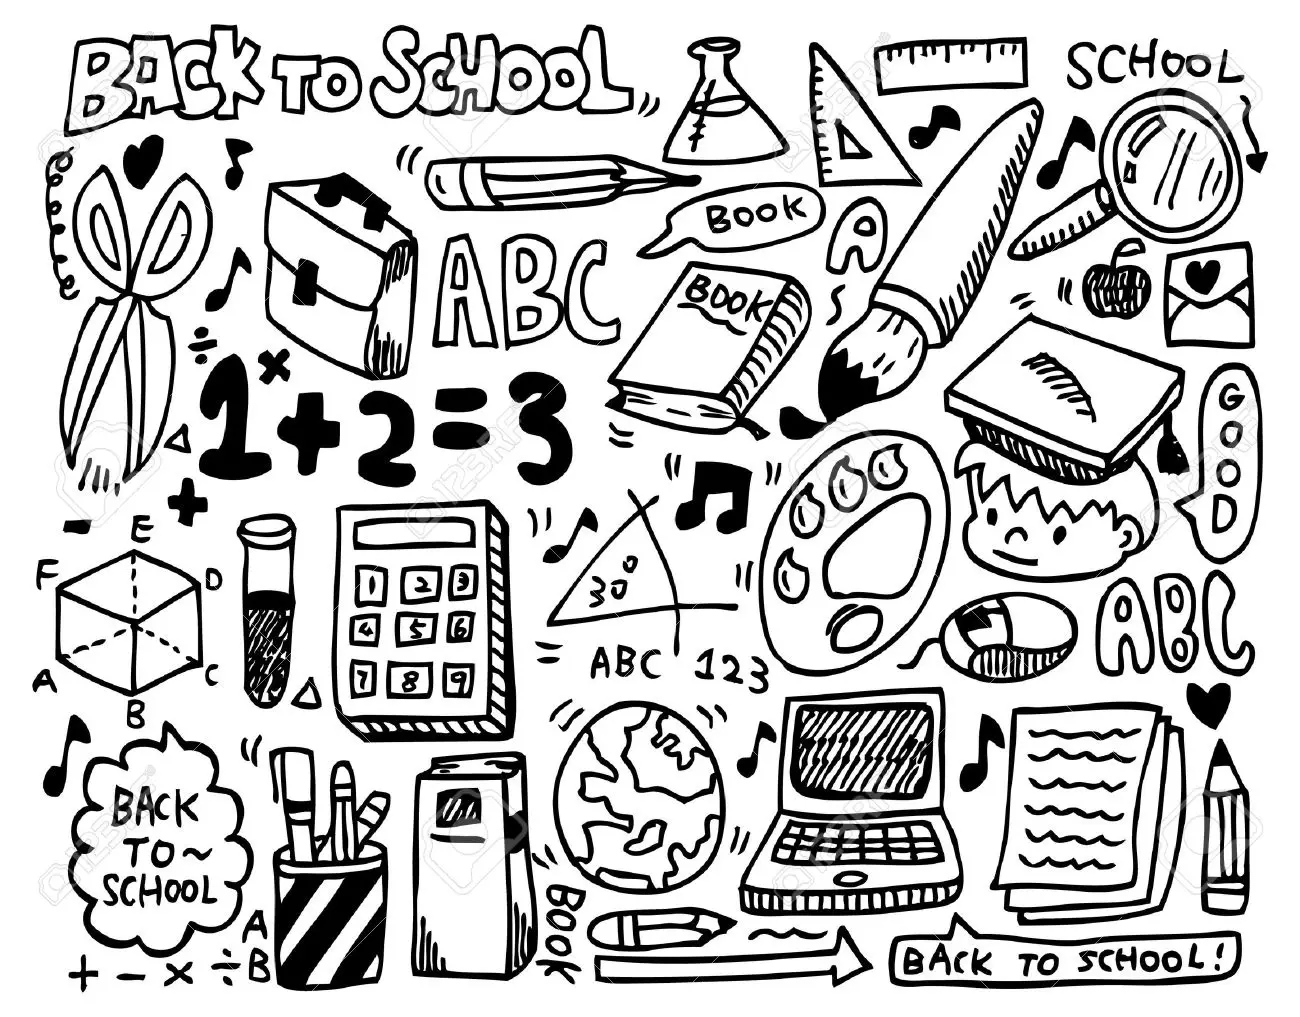 BACK TO SCHOOL
SCHOOL
BOOK
A
ABC
BOOK
÷
×
1+2=3
GOOD
+
-
E
F
D
A
C
B
1 2 3
4 5 6
7 8 9
30°
ABC 123
ABC
BACK
TO~
SCHOOL
+ - × ÷
A
B
BOOK
BACK TO SCHOOL!